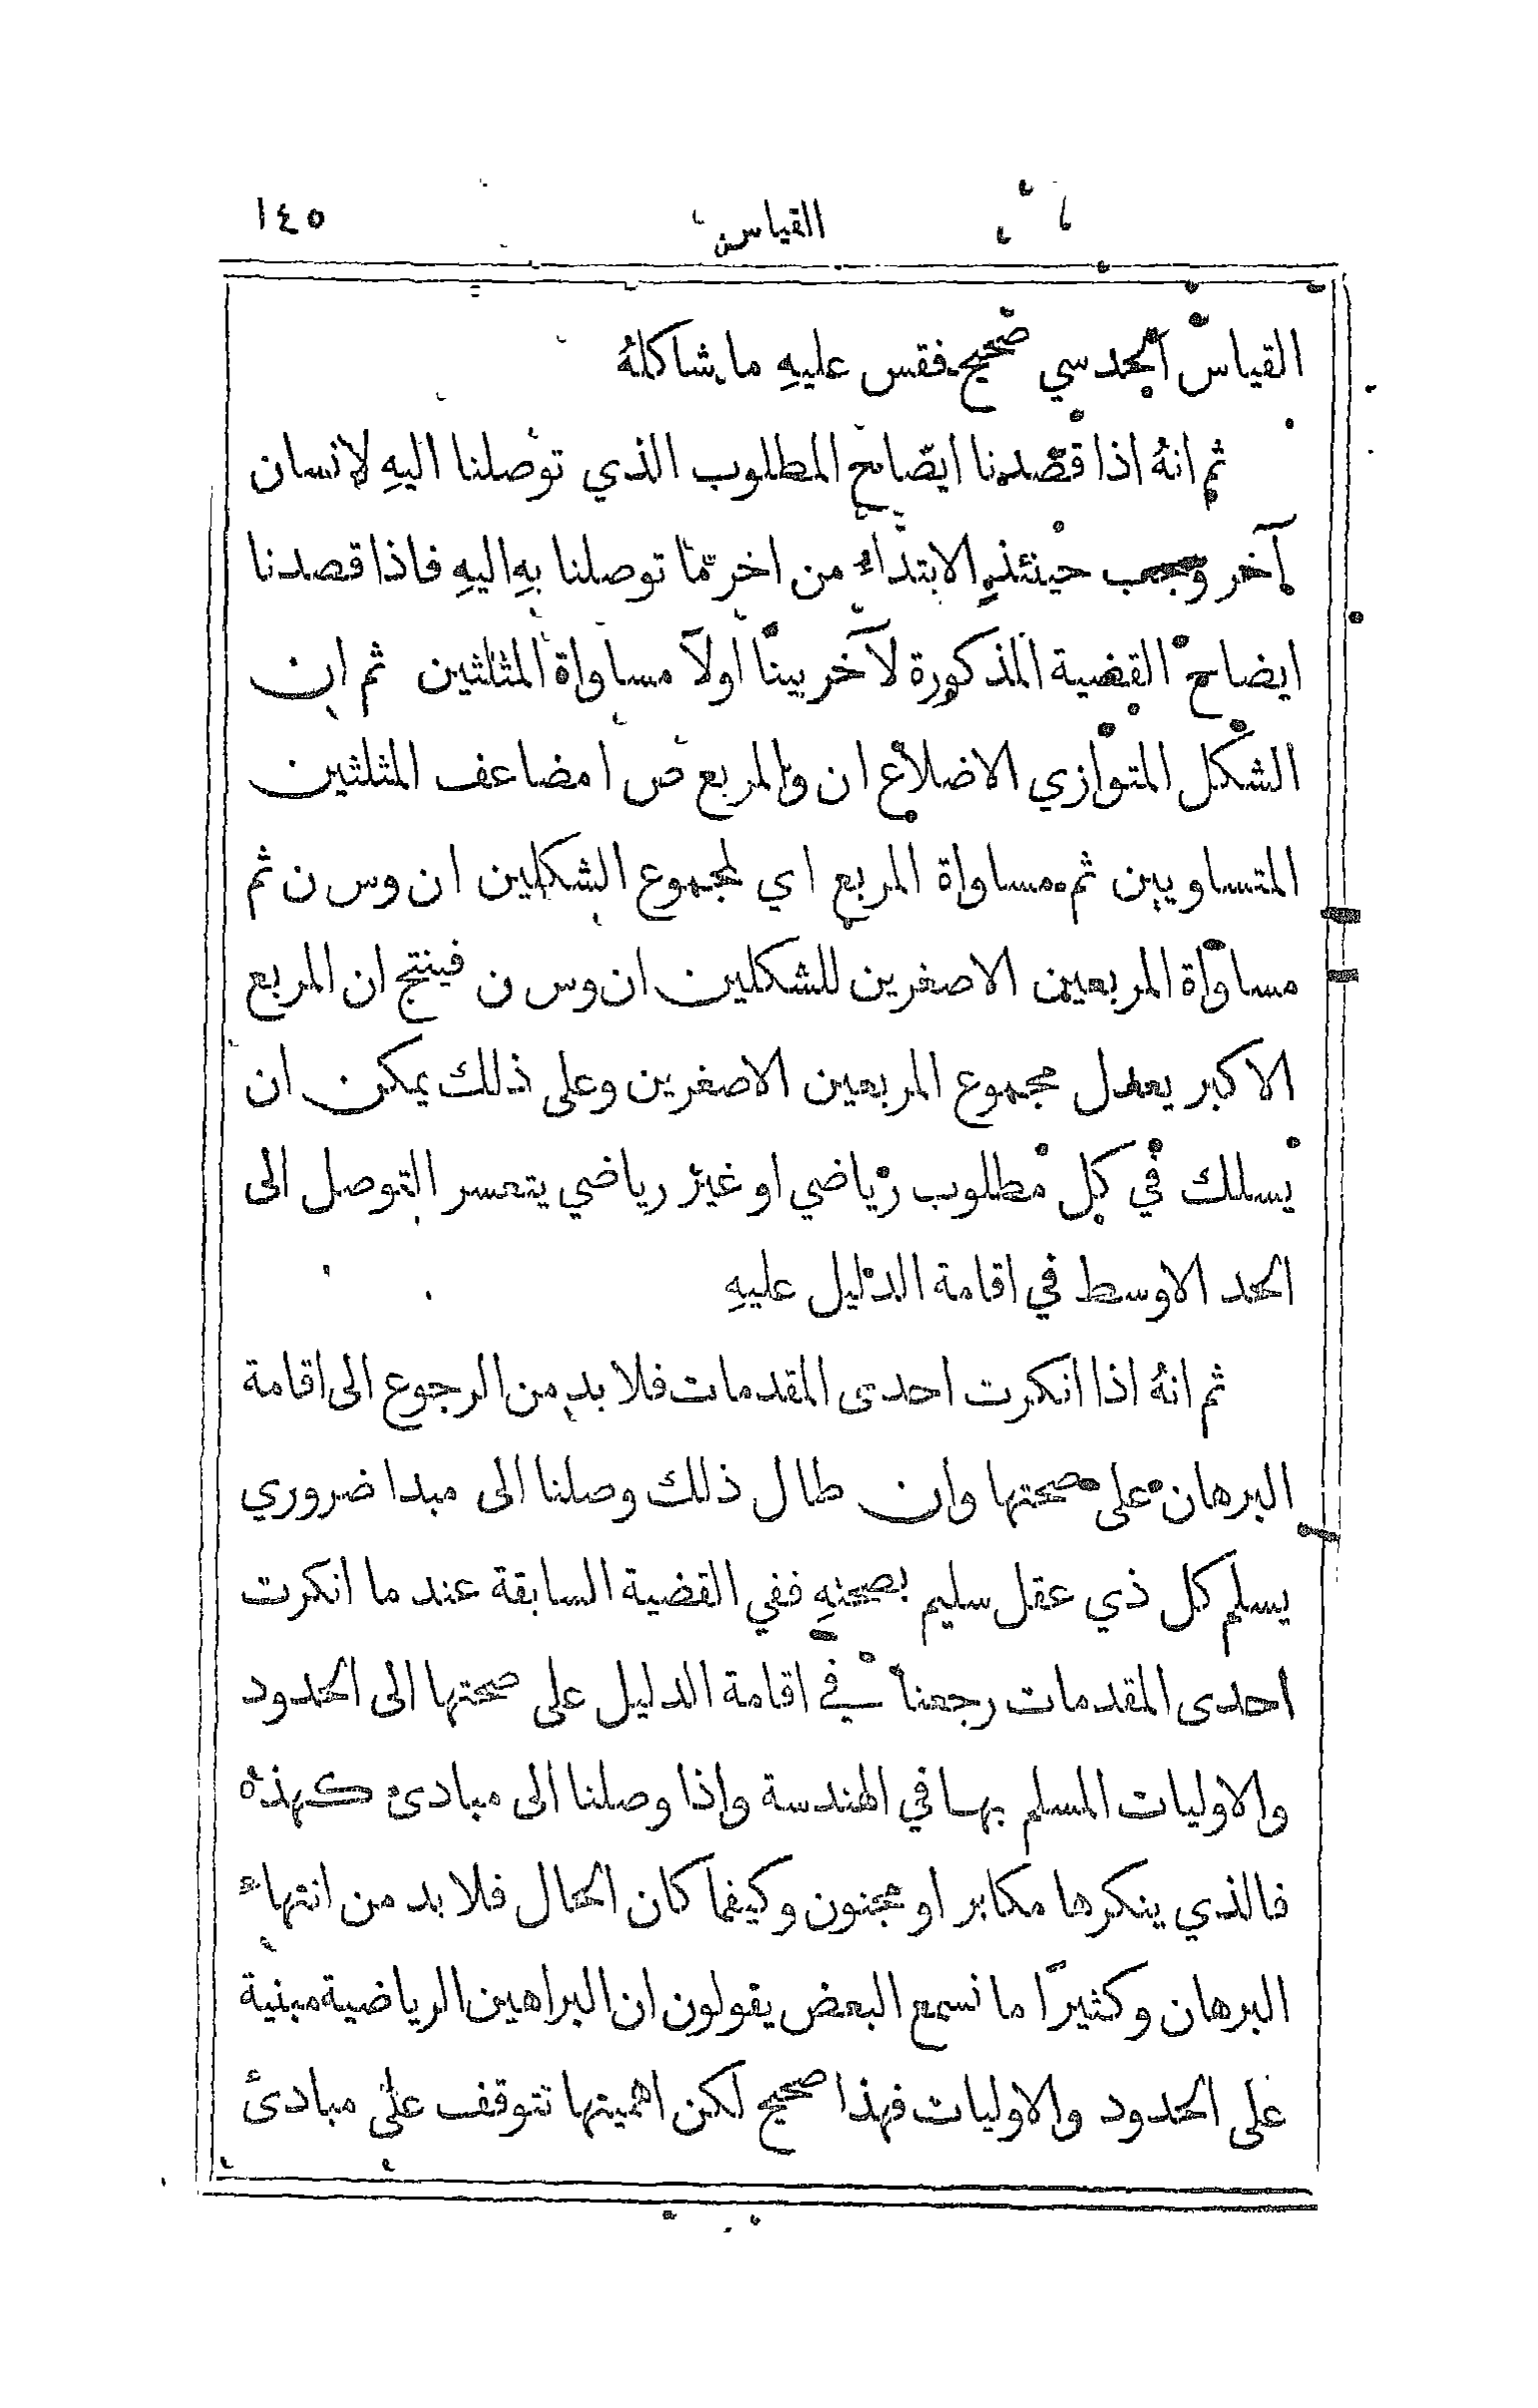 القياس ١٤٥
القياس الحدسي صحيح فقس عليهِ ما شاكلهُ
ثم انهُ اذا قصدنا ايضاح المطلوب الذي توصلنا اليهِ لانسان
آخر وجب حينئذٍ الابتداء من اخر ما توصلنا بهِ اليهِ فاذا قصدنا
ايضاح القضية المذكورة لآخر بينا اولاً مساواة المثلثين ثم ان
الشكل المتوازي الاضلاع ان والمربع ص ا مضاعف المثلثين
المتساويين ثم مساواة المربع اي لمجموع الشكلين ان وس ن ثم
مساواة المربعين الاصغرين للشكلين ان وس ن فينتج ان المربع
الاكبر يعدل مجموع المربعين الاصغرين وعلى ذلك يمكن ان
يسلك في كل مطلوب رياضي او غير رياضي يتعسر التوصل الى
الحد الاوسط في اقامة الدليل عليهِ
ثم انهُ اذا انكرت احدى المقدمات فلا بد من الرجوع الى اقامة
البرهان على صحتها وان طال ذلك وصلنا الى مبدا ضروري
يسلم كل ذي عقل سليم بصحتهِ ففي القضية السابقة عند ما انكرت
احدى المقدمات رجعنا في اقامة الدليل على صحتها الى الحدود
والاوليات المسلم بها في الهندسة واذا وصلنا الى مبادئ كهذه
فالذي ينكرها مكابر او مجنون وكيفما كان الحال فلا بد من انتهاء
البرهان وكثيرًا ما نسمع البعض يقولون ان البراهين الرياضية مبنية
على الحدود والاوليات فهذا صحيح لكن اهميتها تتوقف على مبادئ